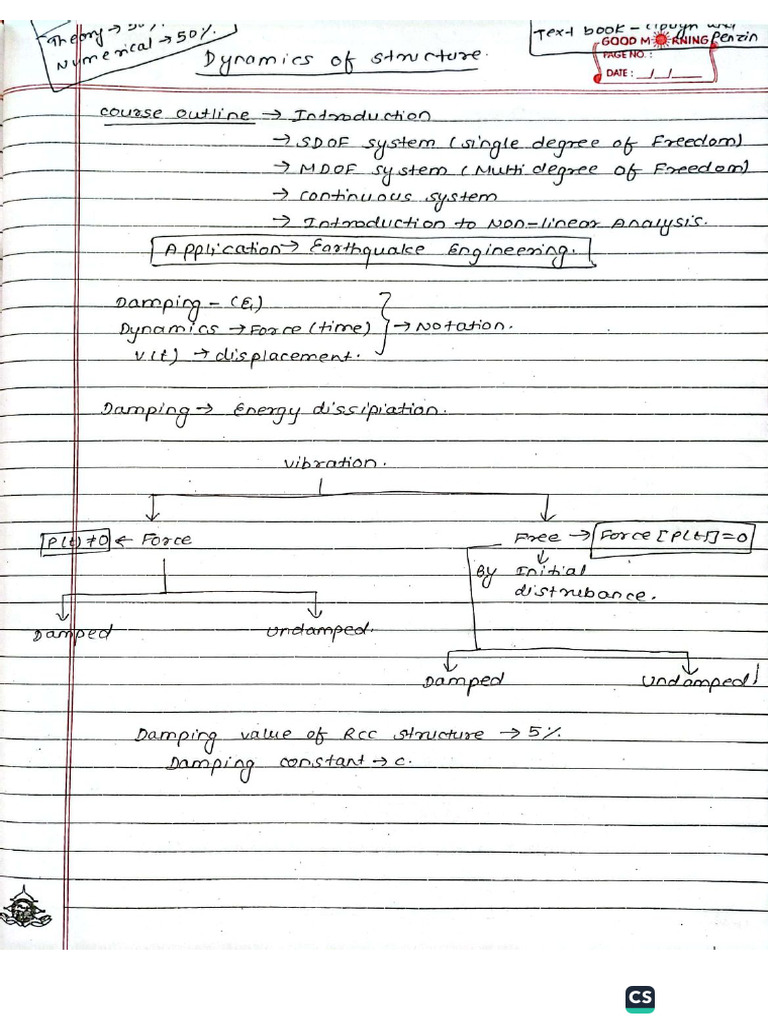 Theory → 50%.
Numerical → 50%.
Text book – and
Penzin
GOOD MORNING
PAGE NO. :
DATE : __/__/____
Dynamics of structure.
Course outline → Introduction
→ SDOF system (single degree of Freedom)
→ MDOF system (Multi degree of Freedom)
→ continuous system
→ Introduction to Non-linear Analysis.
Application → Earthquake Engineering.
Damping – (ξ)
Dynamics → Force (time) → Notation.
v(t) → displacement.
Damping → Energy dissipiation.
vibration.
P(t) ≠ 0 ← Force
Free → Force [P(t)] = 0
By Initial
distrubance.
Damped Undamped.
Damped Undamped
Damping value of RCC structure → 5%.
Damping constant → c.
CS